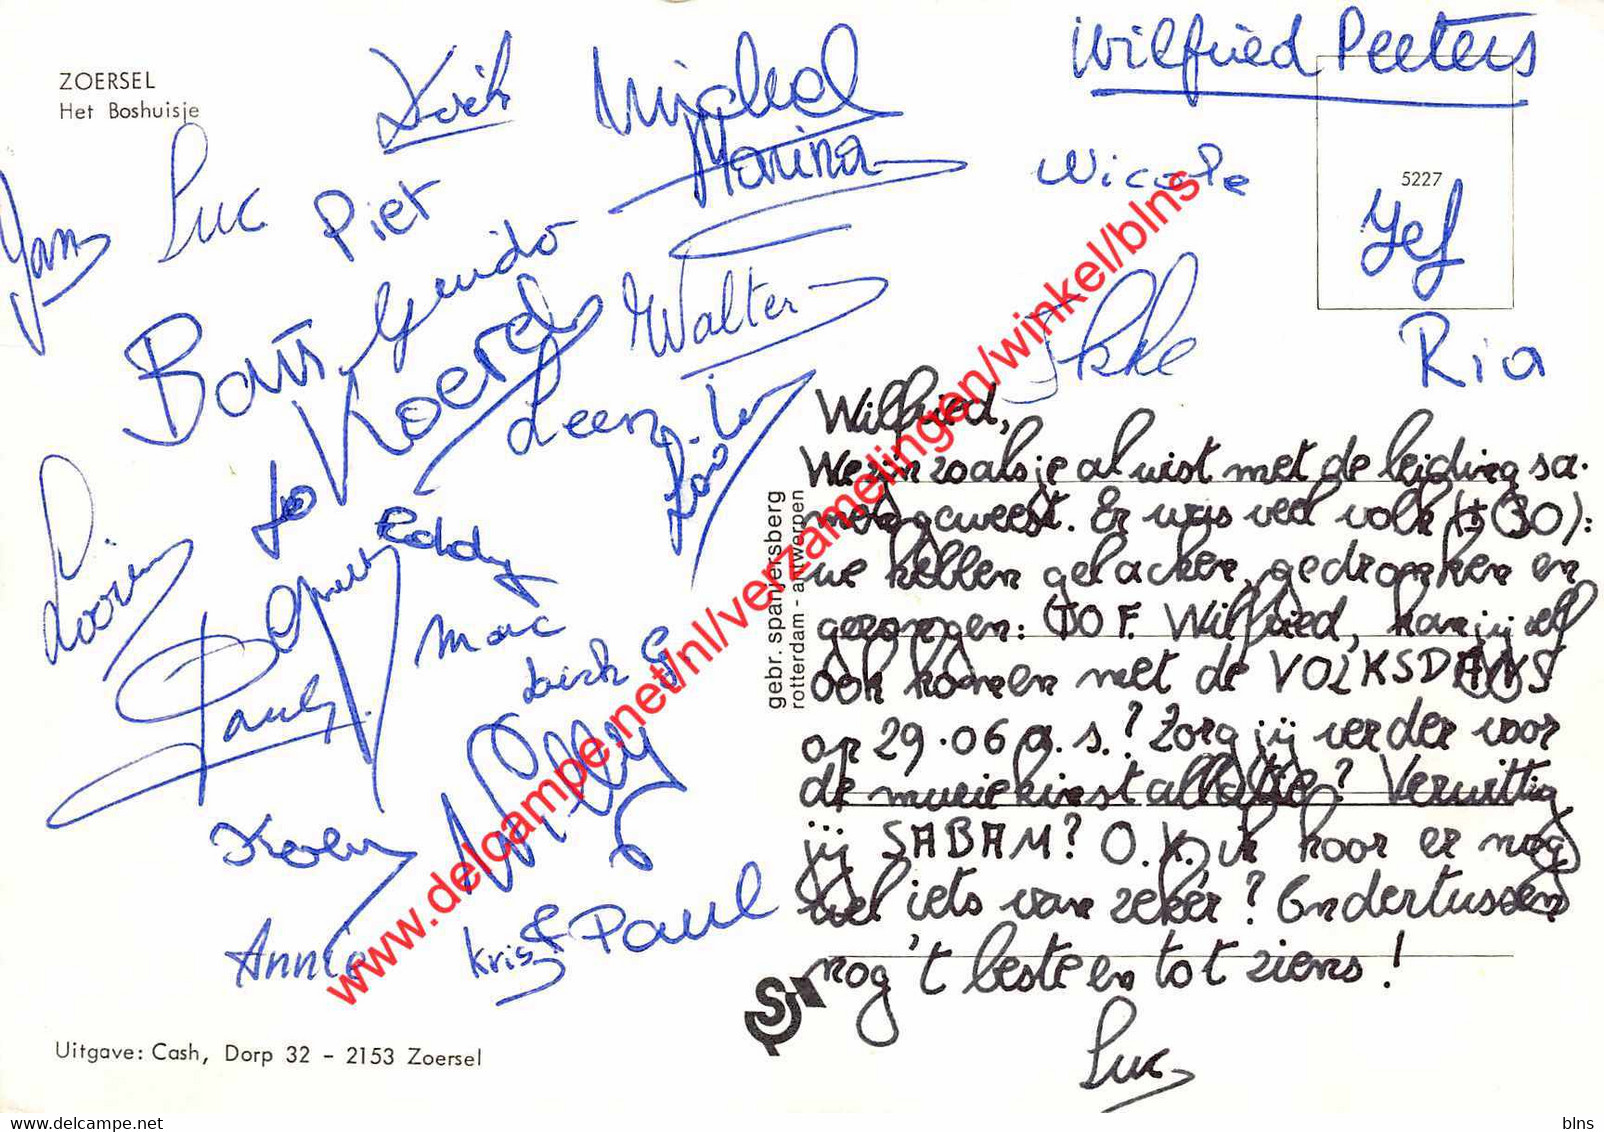 ZOERSEL
Het Boshuisje
Dirk
Michel
Marina
Wilfried Peeters
Nicole
5227
Jef
Jan
Luc
Piet
Guido
Walter
Ria
Bart
Koen
Leen
Jo
Eddy
Marc
Dirk G
Paul
Willy
Koen
Annie
Kris
Paul
Wilfried,
We zijn zoals je al wist met de leiding sa-
men geweest. Er was veel volk (± 30):
we hebben gelachen, gedronken en
gezongen: TOF. Wilfried, kan jij zelf
ook komen met de VOLKSDANS
op 29.06 a.s.? Zorg jij verder voor
de muziekinstallatie? Verwittig
jij SABAM? O.K. ik hoor er nog
wel iets van zeker? Ondertussen
nog 't beste en tot ziens!
Luc
gebr. spanjersberg
rotterdam - antwerpen
Uitgave: Cash, Dorp 32 - 2153 Zoersel
www.delcampe.net/nl/verzamelingen/winkel/blns
www.delcampe.net
blns